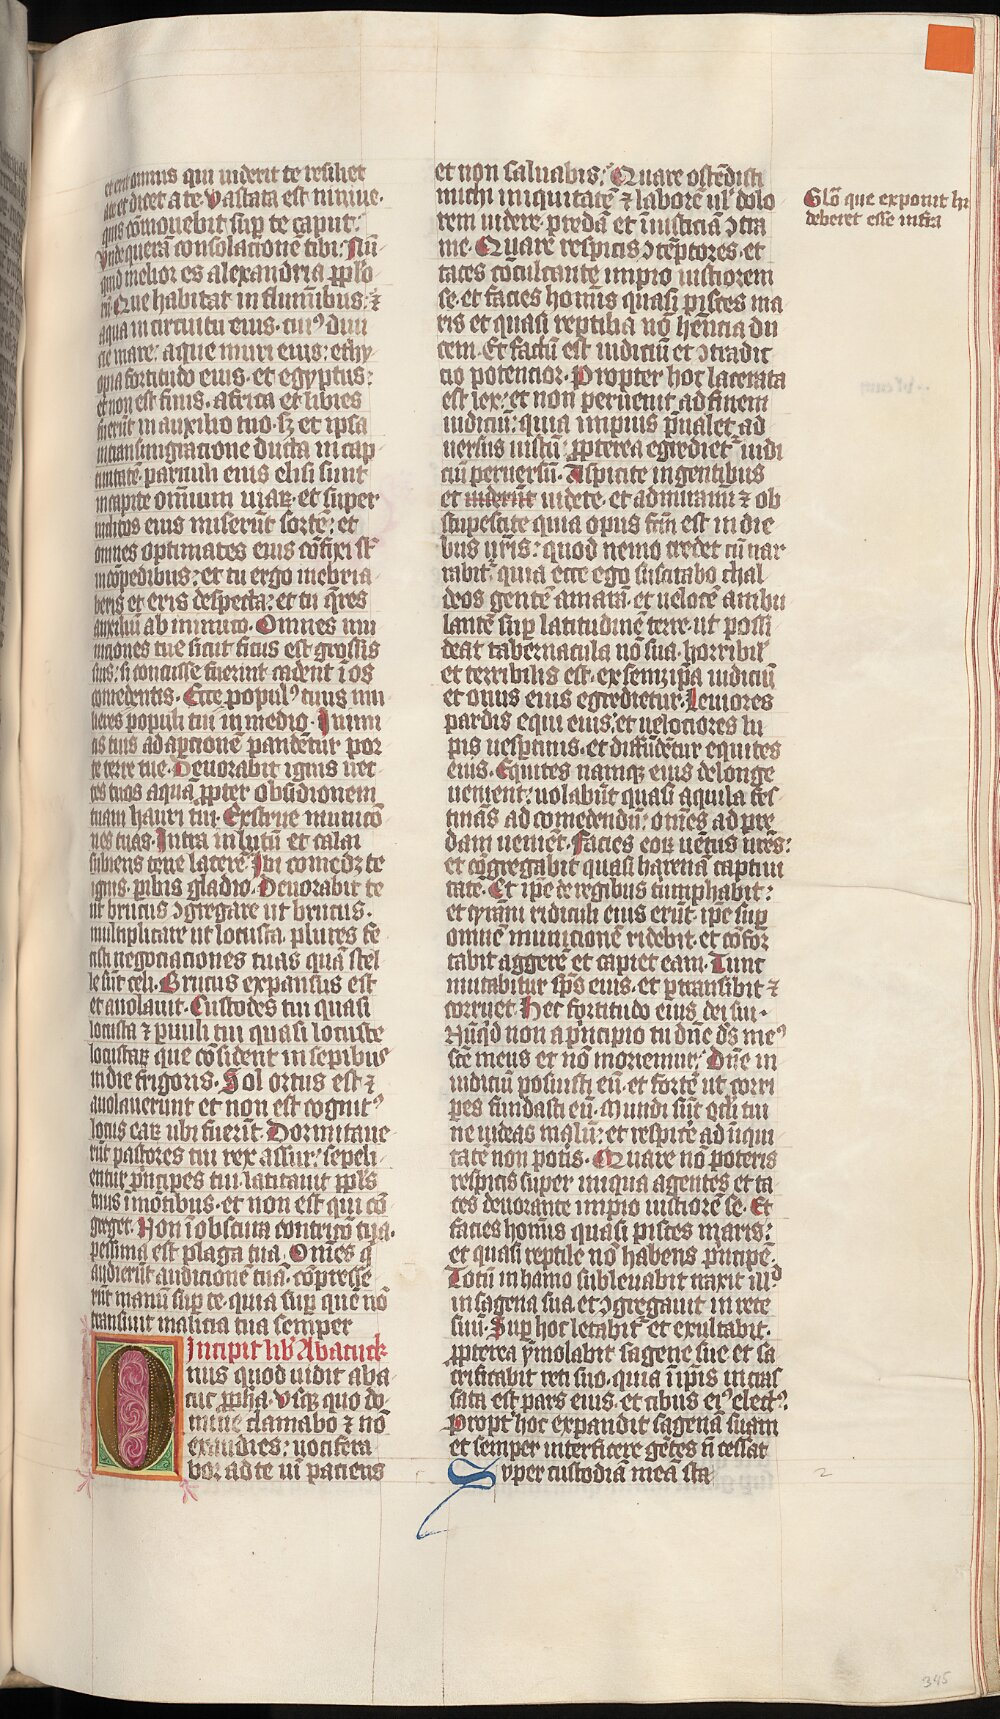 et erit omnis qui uiderit te resiliet
a te et dicet a te. Vastata est niniue.
quis cōmouebit sup te caput:
Vnde querā consolacionē tibi: Nū
quid melior es alexandria pplo
rū. Que habitat in flumībus: ⁊
aqua in circuitu eius. cuiꝰ diui
cie mare: aque muri eius: ethy
opia fortitudo eius. et egyptus:
et non est finis. africa et libies
fuerūt in auxilio tuo. sꝫ et ipsa
in transmigracione ducta in cap
tiuitatē. paruuli eius elisi sunt
in capite om̄ium uiaꝝ. et super
inclitos eius miserūt sortē: et
omnes optimates eius cōfixi st̄
in cōpedibus: et tu ergo inebria
beris et eris despecta: et tu q̄res
auxiliū ab inimico. Omnes mu
niciones tue sicut ficus cū grossis
suis: si concusse fuerint cadent ī os
comedentis. Ecce populꝰ tuus mu
lieres populi tui in medio. Inimi
cis tuis ad apcionē pandētur por
te terre tue. Deuorabit ignis uec
tes tuos aquā ꝓpter obsidionem
tuam hauri tibi. Exstrue municō
nes tuas. Intra in lutū et calca
subiens tene laterē. Ibi comedꝫ te
ignis. pibis gladio. Deuorabit te
ut brucus ꝯgregare ut brucus.
multiplicare ut locusta. plures fe
cisti negociaciones tuas quā stel
le sūt celi. Brucus expansus est
et auolauit. Custodes tui quasi
locusta ⁊ puuli tui quasi locuste
locustaꝝ que cōsident in sepibus
in die frigoris. Sol ortus est ⁊
auolauerunt et non est cognitꝰ
locus eaꝝ ubi fuerīt. Dormitaue
rūt pastores tui rex assur: sepeli
entur prīcipes tui. latitauit ppl̄s
tuus ī mōtibus. et non est qui cō
greget. Non ī obscura contricō tua.
pessima est plaga tua. Om̄es q̄
audierūt audicionē tuā. cōpresse
rūt manū sup te. quia sup quē nō
transiuit malicia tua semper
Incipit lib' Abacuck
Onus quod uidit aba
cuc ppha. Vsqꝫ quo do
mine clamabo ⁊ nō
exaudies: uocifera
bor ad te uī paciens
et non saluabis: Quare ostēdisti
michi iniquitatē ⁊ laborē ul' dolo
rem uidere predā et iniusticiā ꝯtra
me. Quare respicis ꝯtēptores. et
taces cōculcante impio iustiorem
se. et facies homīs quasi pisces ma
ris et quasi reptilia nō hēncia du
cem. Et factū est iudiciū et ꝯtradic
cio potencior. Propter hoc lacerata
est lex: et non peruenit ad finem
iudiciū: quia impius p̄ualet ad
uersus iustū: ꝓpterea egrediet' iudi
ciū peruersū. Aspicite in gentibus
et uiderūt uidete. et admirami ⁊ ob
stupescite quia opus fc̄m est in die
bus ur̄is: quod nemo credet cū nar
rabit' quia ecce ego suscitabo chal
deos gentē amarā. et uelocē ambu
lantē sup latitudinē terre ut possi
deat tabernacula nō sua. horribil'
et terribilis est. ex semꝫipā iudiciū
et onus eius egredietur. Leuiores
pardis equi eius. et uelociores lu
pis uesptinis. et diffūdētur equites
eius. Equites namqꝫ eius de longe
uenient: uolabūt quasi aquila fes
tinās ad comedendū: om̄es ad pre
dam ueniēt. Facies eoꝝ uētus urēs:
et cōgregabit quasi harenā captiui
tatē. Et ip̄e de regibus triumphabit:
et tyrāni ridiculi eius erūt. ip̄e sup
omnē municionē ridebit. et cōfor
tabit aggerē et capiet eam. Tunc
mutabitur sp̄s eius. et ptransibit ⁊
corruet. Hec fortitudo eius dei sui.
Nūqd non a p̄ncipio tu dn̄e d̄s meꝰ
scē meus et nō moriemur: Dn̄e in
iudiciū posuisti eū. et fortē ut corri
pes fundasti eū. Mundi sūt oc̄li tui
ne uideas malū: et respicē ad īiqui
tatē non potis. Quare nō poteris
respicis super iniqua agentes et ta
ces deuorante impio iustiorē se. Et
facies homīs quasi pisces maris:
et quasi reptile nō habens prīcipē.
Totū in hamo subleuabit traxit illᵈ
in sagena sua et ꝯgregauit in rete
suū. Sup hoc letabit' et exultabit.
ꝓpterea ymolabit sagene sue et sa
crificabit reti suo. quia ī ip̄is incras
sata est pars eius. et cibus eiꝰ elect'.
Propt' hoc expandit sagenā suam
et semper interficere gētes n̄ cessat
Super custodiā meā sta
Glo' que exponit hi
deberet esse infra
2
345